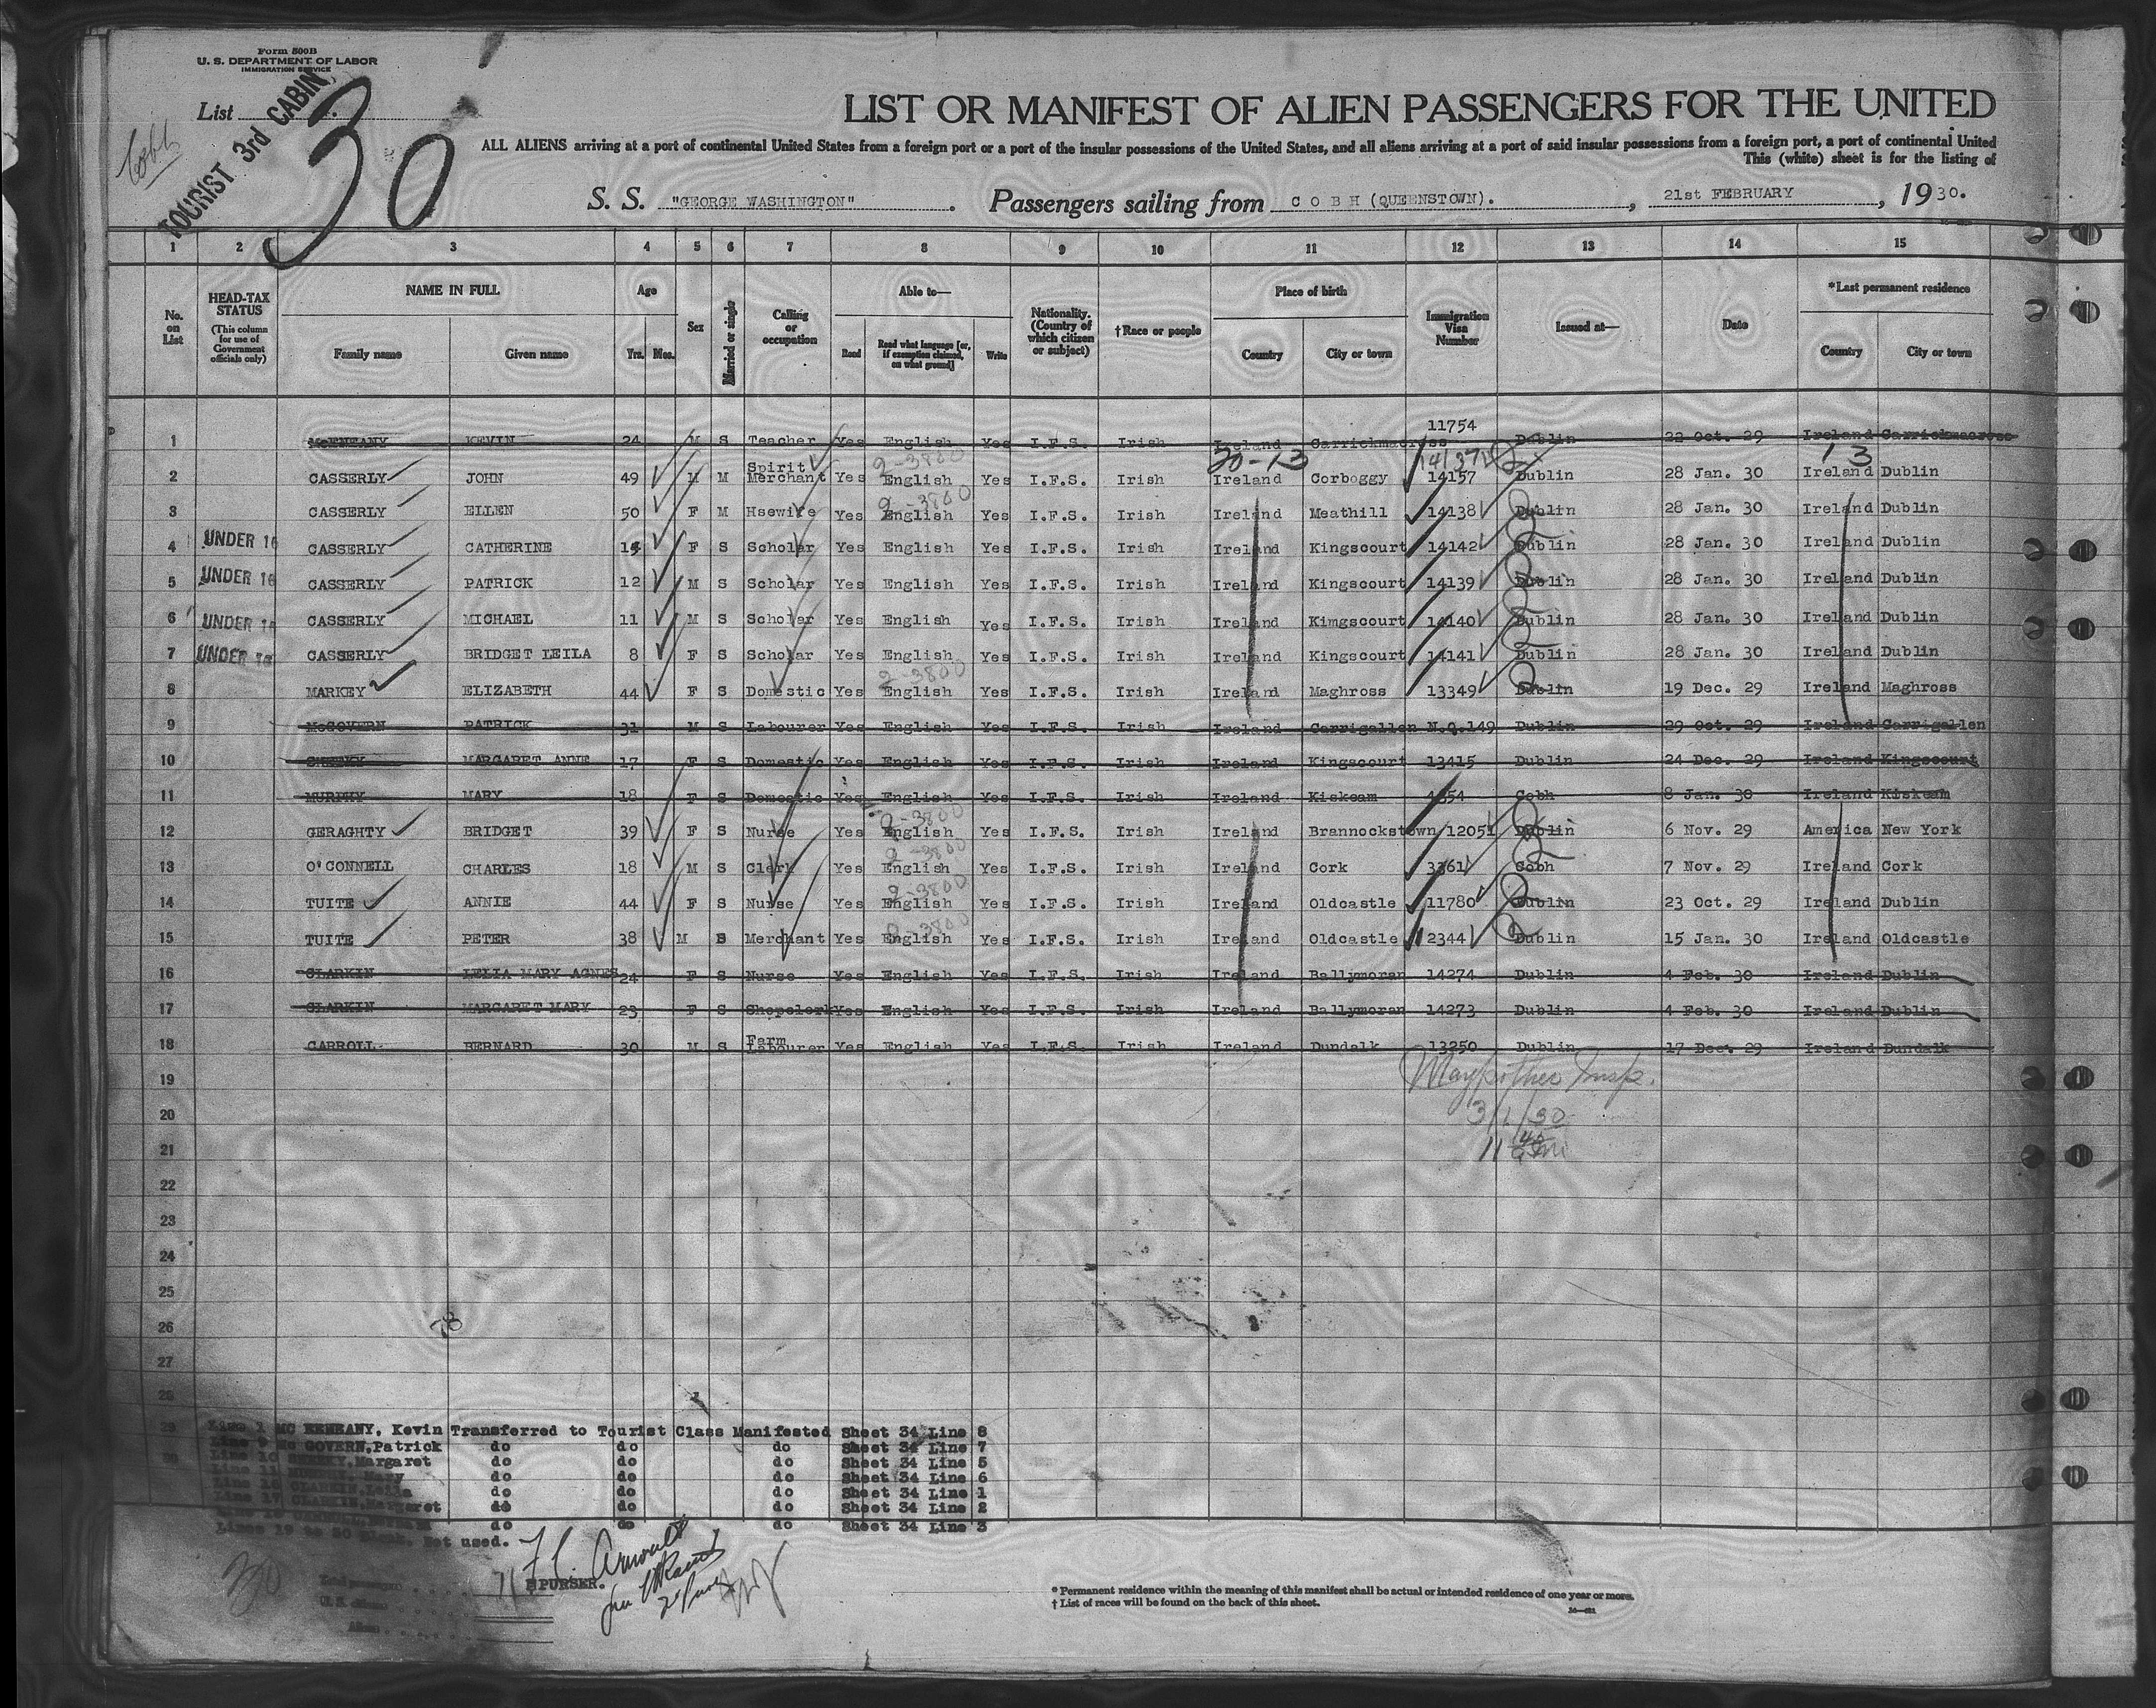 Form 500B
U. S. DEPARTMENT OF LABOR
IMMIGRATION SERVICE
List
TOURIST 3rd CABIN
30
Cobh
LIST OR MANIFEST OF ALIEN PASSENGERS FOR THE UNITED
ALL ALIENS arriving at a port of continental United States from a foreign port or a port of the insular possessions of the United States, and all aliens arriving at a port of said insular possessions from a foreign port, a port of continental United
This (white) sheet is for the listing of
S. S. "GEORGE WASHINGTON". Passengers sailing from COBH (QUEENSTOWN)., 21st FEBRUARY, 1930.
1 2 3 4 5 6 7 8 9 10 11 12 13 14 15
No. on List
HEAD-TAX STATUS (This column for use of Government officials only)
NAME IN FULL Family name Given name
Age Yrs. Mos.
Sex
Married or single
Calling or occupation
Able to— Read Read what language [or, if exemption claimed, on what ground] Write
Nationality. (Country of which citizen or subject)
†Race or people
Place of birth Country City or town
Immigration Visa Number
Issued at—
Date
*Last permanent residence Country City or town
11754
1 McENEANY KEVIN 24 M S Teacher Yes English Yes I.F.S. Irish Ireland Carrickmacross Dublin 22 Oct. 29 Ireland Carrickmacross
20-13 13
2 CASSERLY JOHN 49 M M Spirit Merchant Yes English Yes I.F.S. Irish Ireland Corboggy 14157 Dublin 28 Jan. 30 Ireland Dublin
2-3800
3 CASSERLY ELLEN 50 F M Hsewife Yes English Yes I.F.S. Irish Ireland Meathill 14138 Dublin 28 Jan. 30 Ireland Dublin
2-3800
4 UNDER 16 CASSERLY CATHERINE F S Scholar Yes English Yes I.F.S. Irish Ireland Kingscourt 14142 Dublin 28 Jan. 30 Ireland Dublin
5 UNDER 16 CASSERLY PATRICK 12 M S Scholar Yes English Yes I.F.S. Irish Ireland Kingscourt 14139 Dublin 28 Jan. 30 Ireland Dublin
6 UNDER 16 CASSERLY MICHAEL 11 M S Scholar Yes English Yes I.F.S. Irish Ireland Kimgscourt 14140 Dublin 28 Jan. 30 Ireland Dublin
7 UNDER 16 CASSERLY BRIDGET LEILA 8 F S Scholar Yes English Yes I.F.S. Irish Ireland Kingscourt 14141 Dublin 28 Jan. 30 Ireland Dublin
2-3800
8 MARKEY ELIZABETH 44 F S Domestic Yes English Yes I.F.S. Irish Ireland Maghross 13349 Dublin 19 Dec. 29 Ireland Maghross
9 McGOVERN PATRICK 31 M S Labourer Yes English Yes I.F.S. Irish Ireland Carrigallen N.Q.149 Dublin 29 Oct. 29 Ireland Carrigallen
10 MARGARET ANNE 17 F S Domestic Yes English Yes I.F.S. Irish Ireland Kingscourt 13415 Dublin 24 Dec. 29 Ireland Kingscourt
11 MURPHY MARY 18 F S Domestic Yes English Yes I.F.S. Irish Ireland Kiskeam Cobh 8 Jan. 30 Ireland Kiskeam
2-3800
12 GERAGHTY BRIDGET 39 F S Nurse Yes English Yes I.F.S. Irish Ireland Brannockstown 12051 Dublin 6 Nov. 29 America New York
2-3800
13 O'CONNELL CHARLES 18 M S Clerk Yes English Yes I.F.S. Irish Ireland Cork 3361 Cobh 7 Nov. 29 Ireland Cork
2-3800
14 TUITE ANNIE 44 F S Nurse Yes English Yes I.F.S. Irish Ireland Oldcastle 11780 Dublin 23 Oct. 29 Ireland Dublin
2-3800
15 TUITE PETER 38 M S Merchant Yes English Yes I.F.S. Irish Ireland Oldcastle 12344 Dublin 15 Jan. 30 Ireland Oldcastle
16 CLARKIN LELIA MARY AGNES 24 F S Nurse Yes English Yes I.F.S. Irish Ireland Ballymoran 14274 Dublin 4 Feb. 30 Ireland Dublin
17 CLARKIN MARGARET MARY 23 F S Shopclerk Yes English Yes I.F.S. Irish Ireland Ballymoran 14273 Dublin 4 Feb. 30 Ireland Dublin
18 CARROLL BERNARD 30 M S Farm Labourer Yes English Yes I.F.S. Irish Ireland Dundalk 13250 Dublin 17 Dec. 29 Ireland Dundalk
19
Insp.
20
3/1/30
21
11 40 am
22
23
24
25
26
27
28
29
30
Line 1 MC ENEANY, Kevin Transferred to Tourist Class Manifested Sheet 34 Line 8
Line 9 Mc GOVERN, Patrick do do do Sheet 34 Line 7
Line 10 Margaret do do do Sheet 34 Line 5
Line 11 MURPHY, Mary do do do Sheet 34 Line 6
Line 16 CLARKIN, Leila do do do Sheet 34 Line 1
Line 17 CLARKIN, Margaret do do do Sheet 34 Line 2
do do do Sheet 34 Line 3
Lines 19 to 30 Blank. Not used.
30
PURSER.
Total passengers
U. S. citizens
Aliens
* Permanent residence within the meaning of this manifest shall be actual or intended residence of one year or more.
† List of races will be found on the back of this sheet.